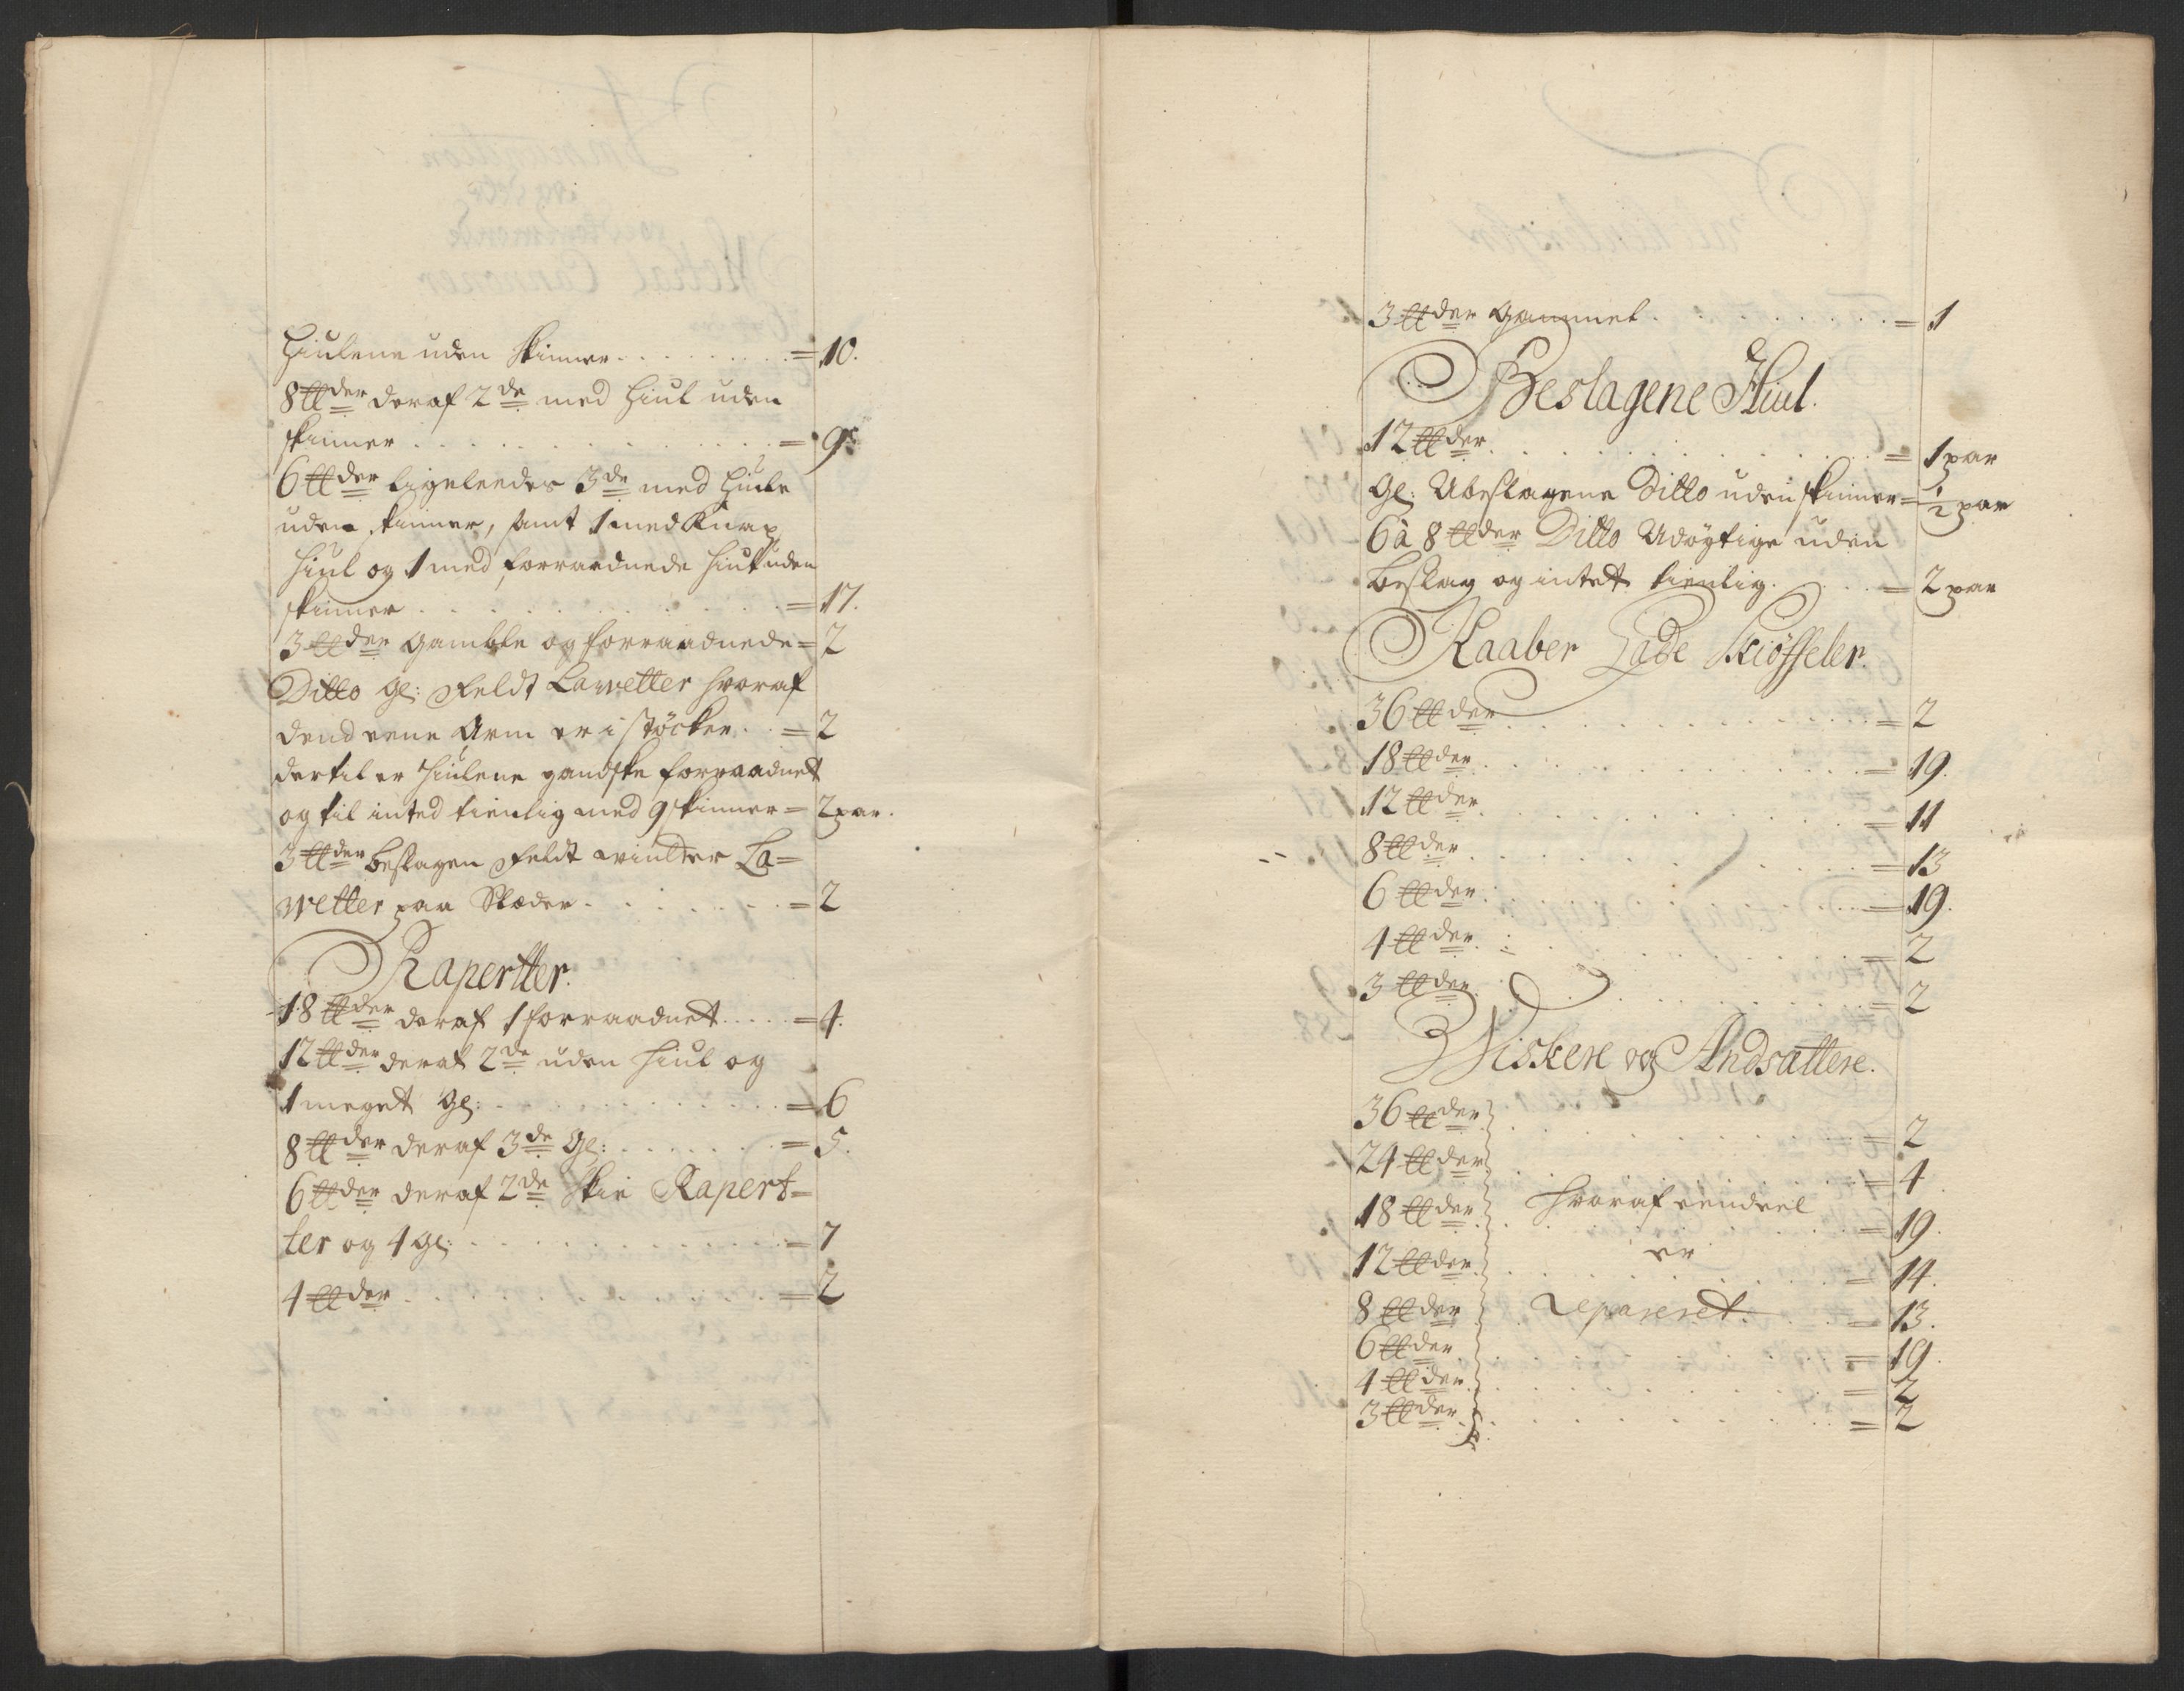 Hiulene uden Skinner . . . . . . . = 10.
8 ℔der deraf 2de med Hiul uden
skinner . . . . . . . . . . . = 9.
6 ℔der ligeleedes 3de med Hiule
uden skinner, samt 1 med Knap
Hiul og 1 med forraadnede Hiul uden
skinner . . . . . . . . . . . = 17.
3 ℔der Gamble og forraadnede = 2
Ditto Gl: Feldt Lawetter hvoraf
dend eene Arm er i støcker . . = 2
dertil er Hiulene gandske forraadnet
og til inted tienlig med 9 skinner = 2 par.
3 ℔der beslagen Feldt La=
wetter paa Slæder . . . . . . . = 2
Rapertter.
18 ℔der deraf 1 forraadnet . . . . = 4.
12 ℔der deraf 2de uden Hiul og
1 meget Gl: . . . . . . . . . . = 6
8 ℔der deraf 3de Gl: . . . . . . = 5.
6 ℔der deraf 2de Skib Rapert=
ter og 4 Gl: . . . . . . . . . . = 7
4 ℔der . . . . . . . . . . . . = 2
3 ℔der Gammel . . . . . . . . . = 1
Beslagene Hiul.
12 ℔der . . . . . . . . . . . . = 1 par
Gl: Ubeslagene Ditto uden skinner = ½ par
6 à 8 ℔der Ditto Udøgtige uden
beslag og intet tienlig . . . . = 2 par
Kaaber Lade Skiøffeler.
36 ℔der . . . . . . . . . . . . = 2
18 ℔der . . . . . . . . . . . . = 19.
12 ℔der . . . . . . . . . . . . = 11
8 ℔der . . . . . . . . . . . . = 13
6 ℔der . . . . . . . . . . . . = 19.
4 ℔der . . . . . . . . . . . . = 2
3 ℔der . . . . . . . . . . . . = 2
Viskere og Andsættere.
36 ℔der . . . . . . . . . . . . = 2
24 ℔der . . . . . . . . . . . . = 4
18 ℔der hvoraf eendeel . . . . = 19.
12 ℔der er . . . . . . . . . . = 14.
8 ℔der repareret . . . . . . . = 13.
6 ℔der . . . . . . . . . . . . = 19.
4 ℔der . . . . . . . . . . . . = 2
3 ℔der . . . . . . . . . . . . = 2